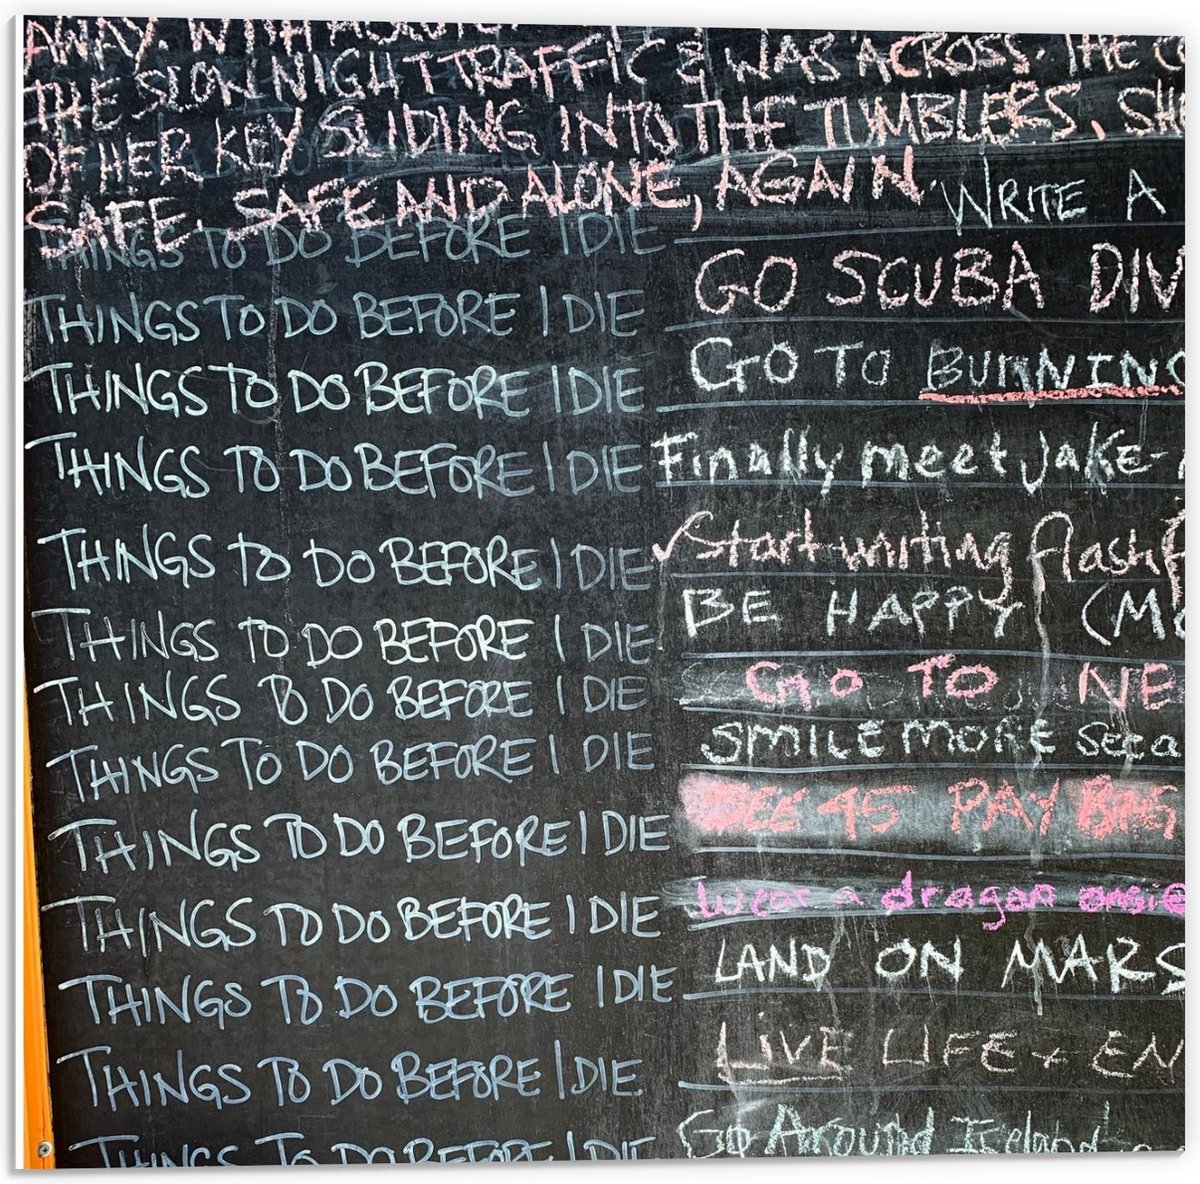 AWAY. WITH
THE SLOW NIGHT TRAFFIC & WAS ACROSS. THE
OF HER KEY SLIDING INTO THE TUMBLERS. SH
SAFE. SAFE AND ALONE, AGAIN.
THINGS TO DO BEFORE I DIE WRITE A
THINGS TO DO BEFORE I DIE GO SCUBA DIV
THINGS TO DO BEFORE I DIE GO TO BURNING
THINGS TO DO BEFORE I DIE Finally meet Jake-
THINGS TO DO BEFORE I DIE Start writing flash f
THINGS TO DO BEFORE I DIE BE HAPPY (MO
THINGS TO DO BEFORE I DIE GO TO NE
THINGS TO DO BEFORE I DIE SMILE MORE
THINGS TO DO BEFORE I DIE SEE 45 PAY
THINGS TO DO BEFORE I DIE Wear a dragon onsie
THINGS TO DO BEFORE I DIE LAND ON MARS
THINGS TO DO BEFORE I DIE LIVE LIFE + EN
THINGS TO DO BEFORE I DIE Go Around Iceland